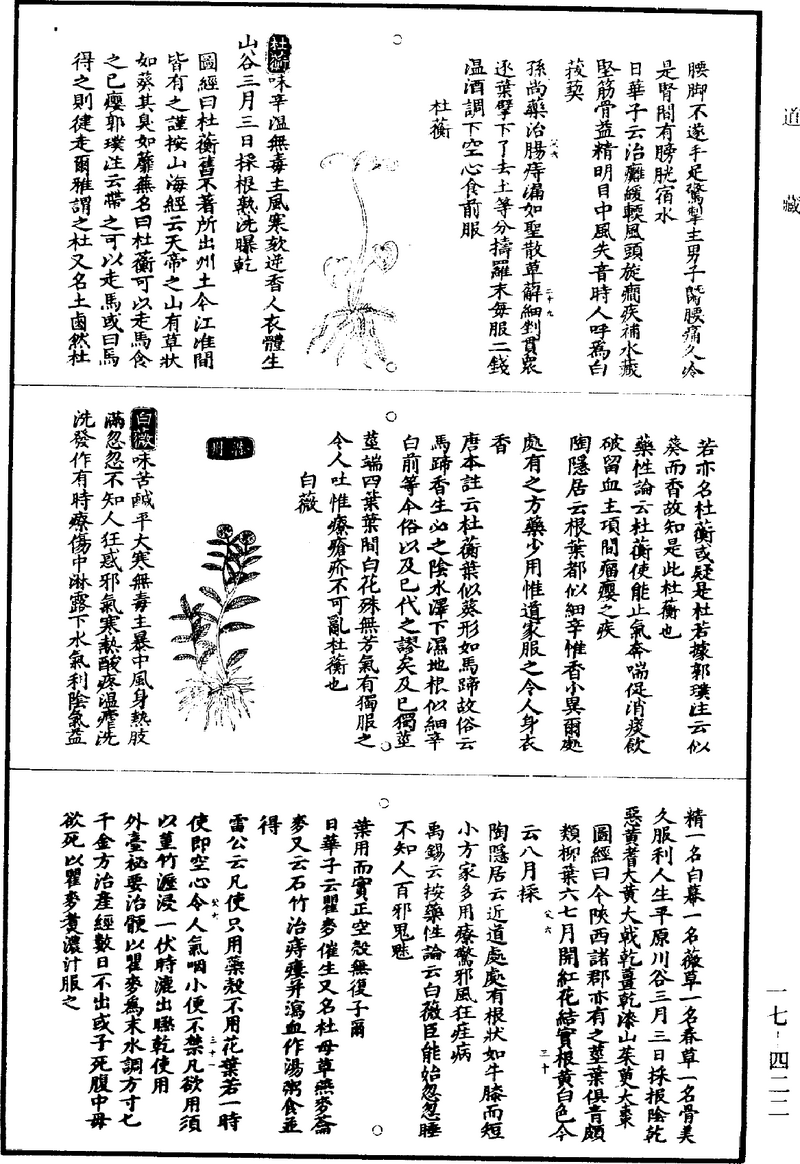 道藏
腰脚不遂手足驚掣主男子䐴腰痛久冷
是腎間有膀胱宿水
日華子云治癱緩輭風頭旋癇疾補水藏
堅筋骨益精明目中風失音時人呼爲白
菝葜
孫尚藥治腸痔漏如聖散草薢細剉貫衆
逐葉擘下了去土等分擣羅末每服二錢
温酒調下空心食前服
杜蘅
杜蘅味辛温無毒主風寒欬逆香人衣體生
山谷三月三日採根熟洗曝乾
圖經曰杜蘅舊不著所出州土今江淮間
皆有之謹按山海經云天帝之山有草狀
如葵其臭如蘼蕪名曰杜蘅可以走馬食
之已癭郭璞注云帶之可以走馬或曰馬
得之則健走爾雅謂之杜又名土鹵然杜
若亦名杜蘅或疑是杜若據郭璞注云似
葵而香故知是此杜蘅也
藥性論云杜蘅使能止氣奔喘促消痰飲
破留血主項間瘤癭之疾
陶隱居云根葉都似細辛惟香小異爾處
處有之方藥少用惟道家服之令人身衣
香
唐本註云杜蘅葉似葵形如馬蹄故俗云
馬蹄香生山之陰水澤下濕地根似細辛
白前等今俗以及已代之謬矣及已獨莖
莖端四葉葉間白花殊無芳氣有獨服之
令人吐惟療瘡疥不可亂杜蘅也
白薇
滁州
白薇味苦鹹平大寒無毒主暴中風身熱肢
滿忽忽不知人狂惑邪氣寒熱酸疼温瘧洗
洗發作有時療傷中淋露下水氣利陰氣益
精一名白幕一名薇草一名春草一名骨美
久服利人生平原川谷三月三日採根陰乾
惡黃耆大黃大戟乾薑乾漆山茱萸大棗
圖經曰今陝西諸郡亦有之莖葉俱青頗
類柳葉六七月開紅花結實根黃白色今
云八月採
陶隱居云近道處處有根狀如牛膝而短
小方家多用療驚邪風狂疰病
禹錫云按藥性論云白薇臣能始忽忽睡
不知人百邪鬼魅
葉用而實正空殼無復子爾
日華子云瞿麥催生又名杜母草燕麥蘥
麥又云石竹治痔瘻并瀉血作湯粥食並
得
雷公云凡使只用蘂殼不用花葉若一時
使即空心令人氣咽小便不禁凡欲用須
以菫竹瀝浸一伏時漉出㬠乾使用
外臺祕要治骾以瞿麥爲末水調方寸匕
千金方治產經數日不出或子死腹中母
欲死以瞿麥煑濃汁服之
一七-四二二